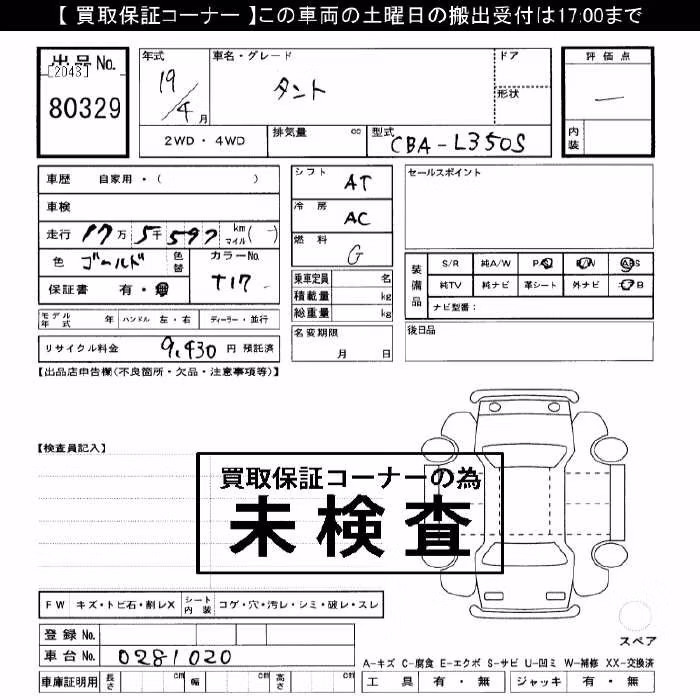 【 買取保証コーナー 】この車両の土曜日の搬出受付は17:00まで
出品No.
[2043]
80329
年式
19/4月
車名・グレード
タント
ドア
形状
評価点
—
内装
2WD・4WD
排気量 cc
型式
CBA-L350S
車歴 自家用・( )
車検
走行 17万5千597 km マイル(-)
色 ゴールド 色替
カラーNo.
T17
保証書 有・無
モデル年式 年 ハンドル 左・右 ディーラー・並行
リサイクル料金 9,430 円 預託済
シフト AT
冷房 AC
燃料 G
乗車定員 名
積載量 kg
総重量 kg
名変期限
月 日
セールスポイント
装備品
S/R 純A/W P/S P/W ABS
純TV 純ナビ 革シート 外ナビ エアB
ナビ型番:
後日品
【出品店申告欄(不良箇所・欠品・注意事項等)】
【検査員記入】
買取保証コーナーの為
未検査
FW キズ・トビ石・割レX シート内装 コゲ・穴・汚レ・シミ・破レ・スレ
登録No.
車台No. 0281020
車庫証明用 長さ cm 幅 cm 高さ cm
スペア
A-キズ C-腐食 E-エクボ S-サビ U-凹ミ W-補修 XX-交換済
工具 有・無 ジャッキ 有・無